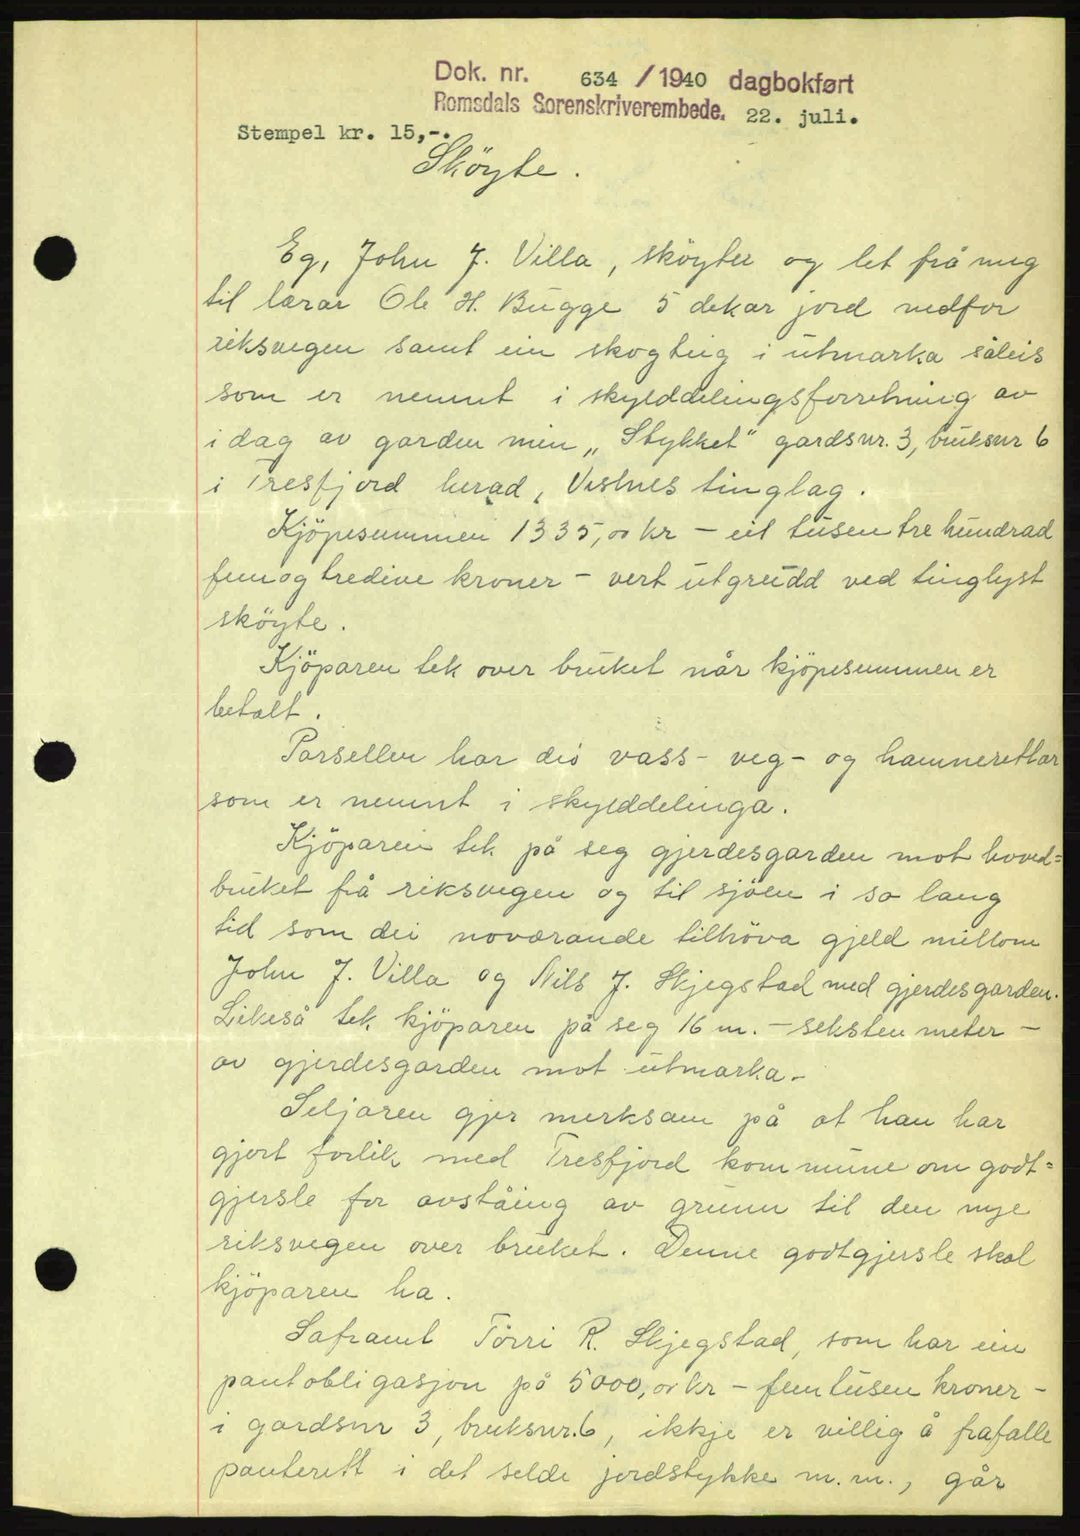 Dok. nr. 634 / 1940 dagbokført
Romsdals Sorenskriverembede. 22. juli.
Stempel kr. 15,-.
Sköyte.
Eg, John J. Villa, sköyter og let frå meg
til lærar Ole H. Bugge 5 dekar jord nedfor
riksvegen samt ein skogteig i utmarka såleis
som er nemnt i skylddelingsforretning av
i dag av garden min „Stykket" gardsnr. 3, bruksnr 6
i Tresfjord herad, Vestnes tinglag.
Kjöpesummen 1335,00 kr - eit tusen tre hundrad
fem og tredive kroner - vert utgreidd ved tinglyst
sköyte.
Kjöparen tek over bruket når kjöpesummen er
betalt.
Parsellen har dei vass- veg- og hamnerettar
som er nemnt i skylddelinga.
Kjöparen tek på seg gjerdesgarden mot hoved=
bruket frå riksvegen og til sjöen i so lang
tid som dei noværande tilhöva gjeld millom
John J. Villa og Nils J. Skjegstad med gjerdesgarden.
Likeså tek kjöparen på seg 16 m. - seksten meter -
av gjerdesgarden mot utmarka.-
Seljaren gjer merksam på at han har
gjort forlik med Tresfjord kommune om godt=
gjersle for avståing av grunn til den nye
riksvegen over bruket. Denne godtgjersle skal
kjöparen ha.
Saframt Törri R. Skjegstad, som har ein
pantobligasjon på 5000,00 kr - fem tusen kroner -
i gardsnr 3, bruksnr. 6, ikkje er villig å frafalle
panterett i det selde jordstykke m.m., går